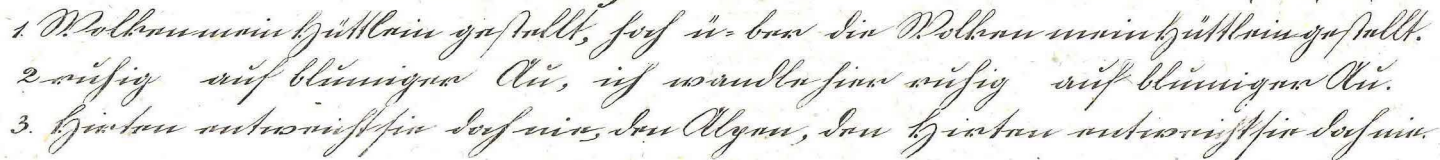 1. Wolken mein Hüttlein gestellt, hoch ü=ber die Wolken mein Hüttlein gestellt.
2 ruhig auf blumiger Au, ich wandle hier ruhig auf blumiger Au.
3. Hirten entweicht sie doch nie, den Alpen, den Hirten entweicht sie doch nie.